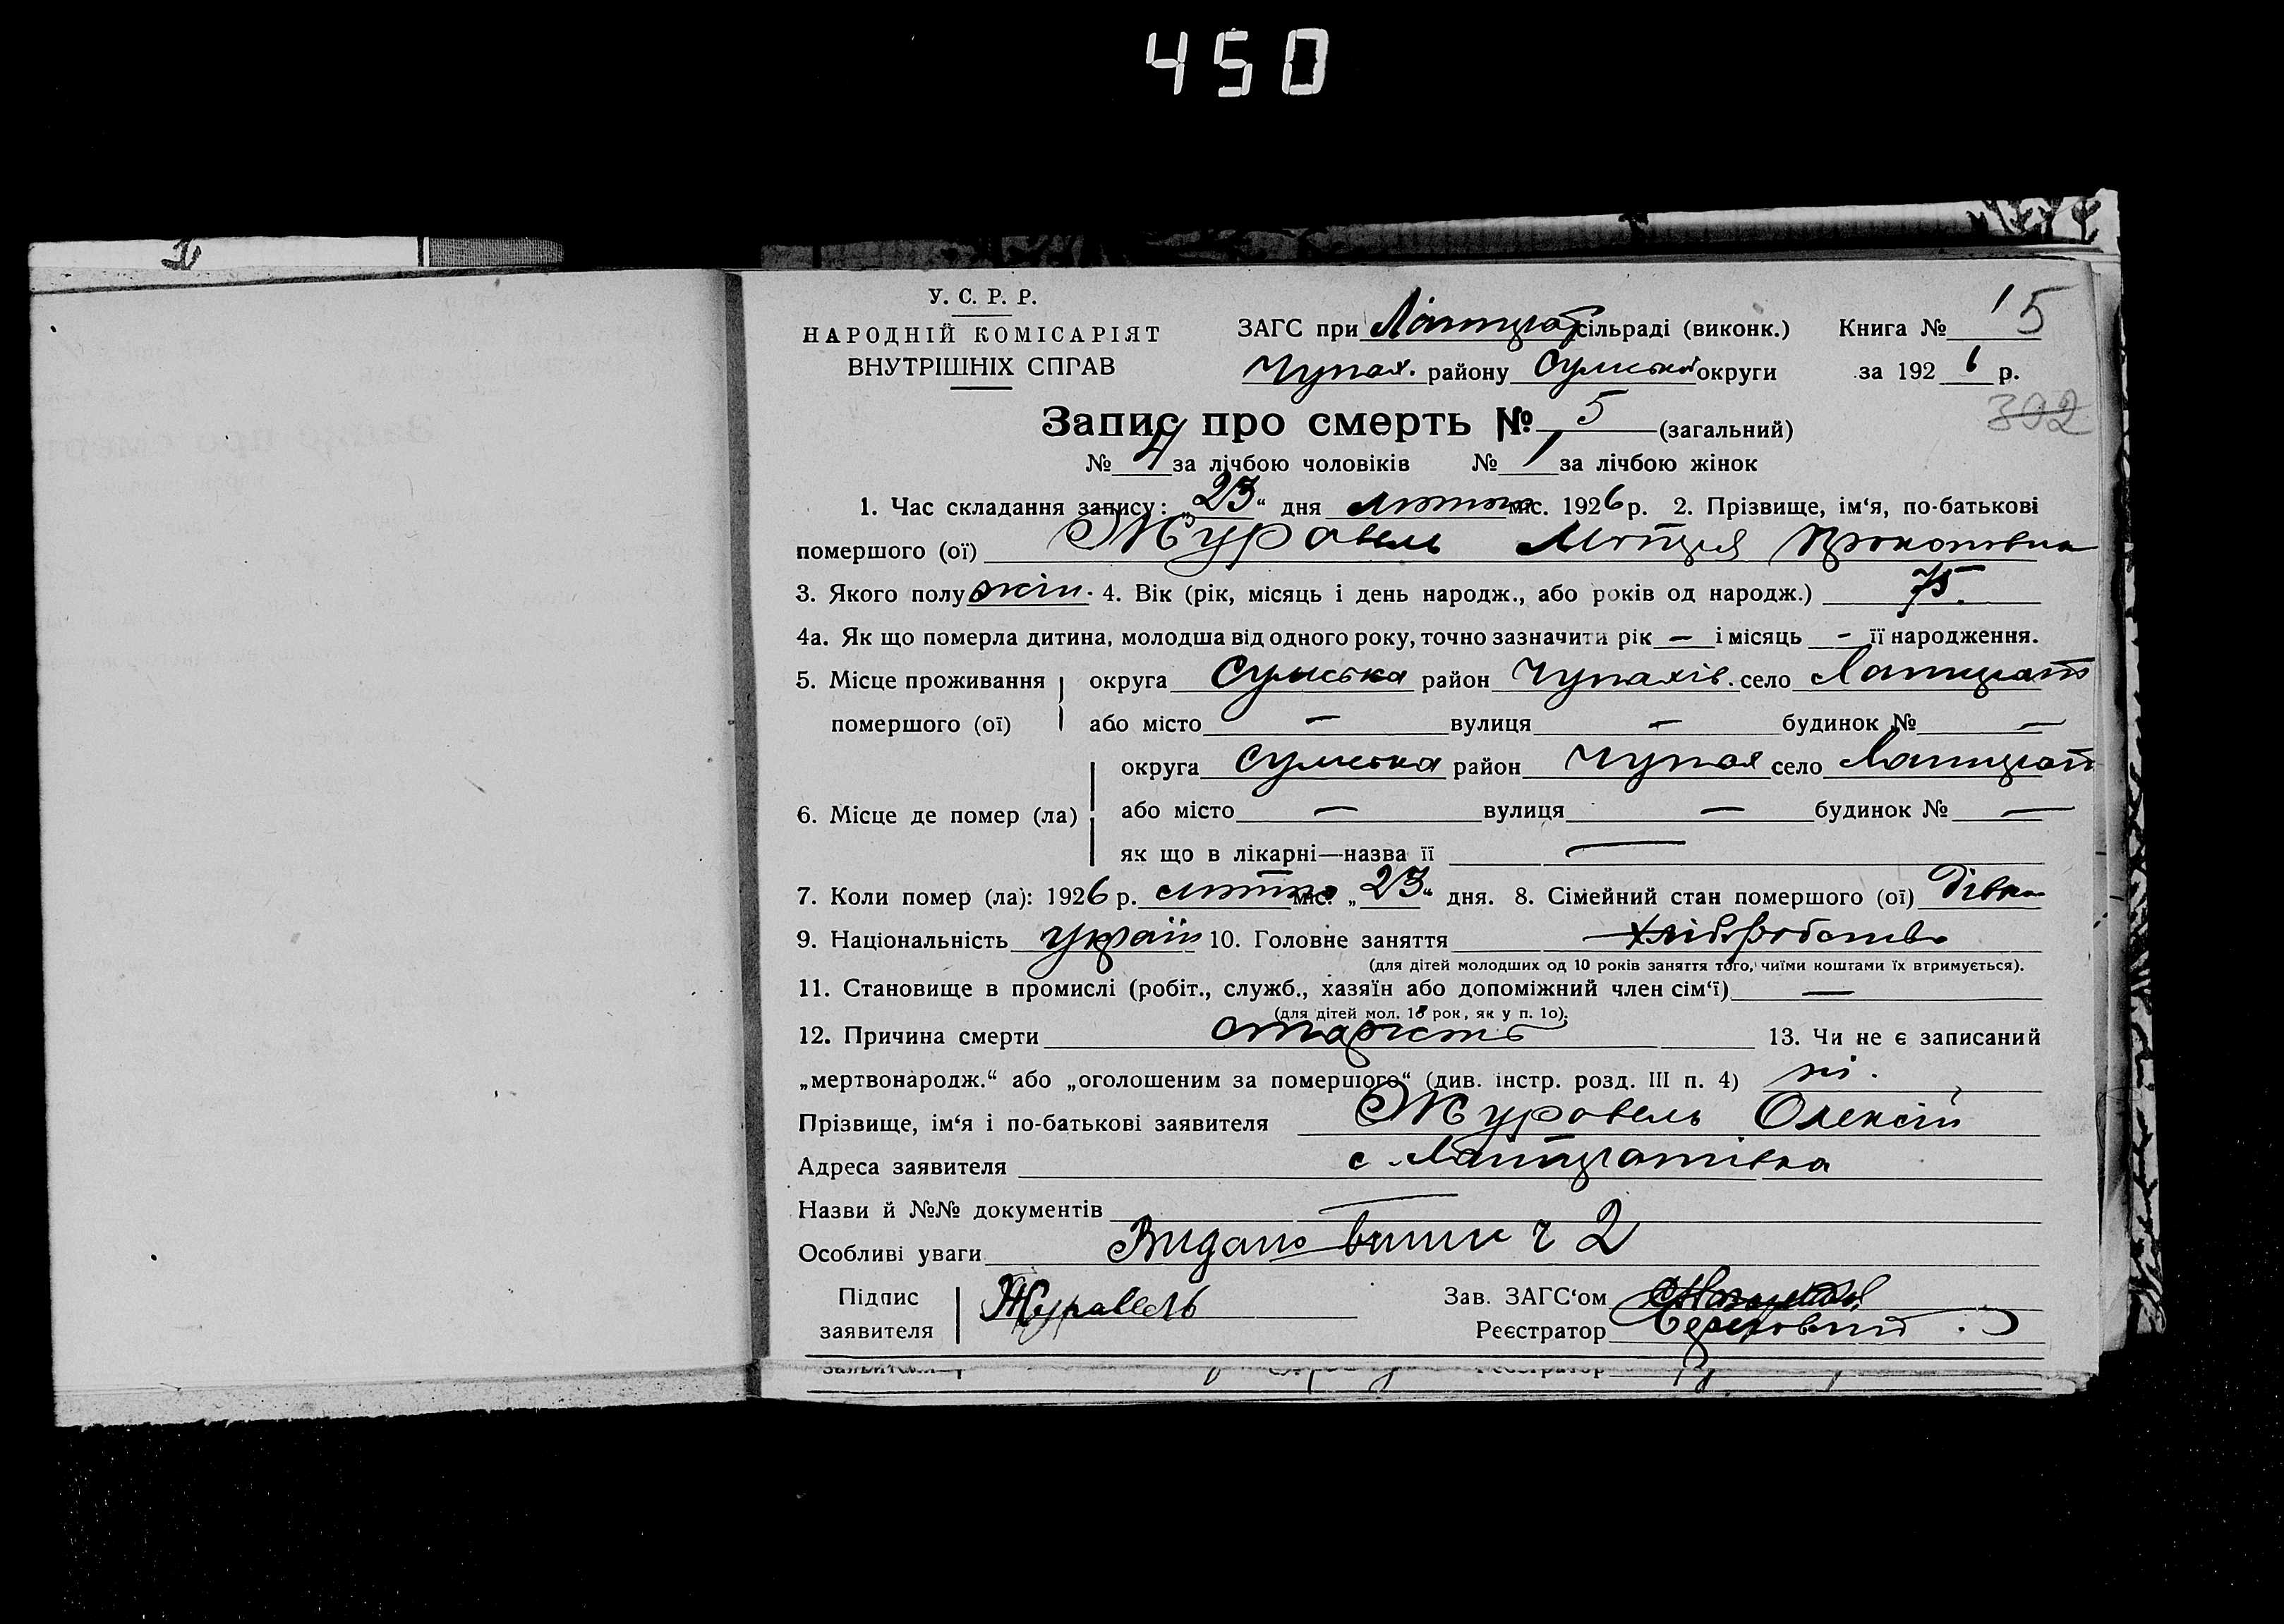 450
У. С. Р. Р.
НАРОДНІЙ КОМІСАРІЯТ
ВНУТРІШНІХ СПРАВ
ЗАГС при сільраді (виконк.) Книга № 1 5
Чупах. району Сумської округи за 1926 р.
302
Запис про смерть № 5 (загальний)
№ 4 за лічбою чоловіків № 1 за лічбою жінок
1. Час складання запису: „23“ дня лютого міс. 1926 р. 2. Прізвище, ім‘я, по-батькові
помершого (ої) Журавель Мотря Прокоповна
3. Якого полу жін. 4. Вік (рік, місяць і день народж., або років од народж.) 75.
4а. Як що померла дитина, молодша від одного року, точно зазначити рік — і місяць - її народження.
5. Місце проживання округа Сумська район Чупахів. село
помершого (ої) або місто — вулиця — будинок № —
округа Сумська район Чупах село
6. Місце де помер (ла) або місто — вулиця — будинок № —
як що в лікарні—назва її —
7. Коли помер (ла): 1926 р. лютого міс. „23“ дня. 8. Сімейний стан помершого (ої) дівка
9. Національність україн 10. Головне заняття хліборобство
(для дітей молодших од 10 років заняття того, чиїми коштами їх втримується).
11. Становище в промислі (робіт., служб., хазяїн або допоміжний член сім‘ї) —
(для дітей мол. 10 рок, як у п. 10).
12. Причина смерти старість 13. Чи не є записаний
„мертвонародж.“ або „оголошеним за помершого“ (див. інстр. розд. III п. 4) ні.
Прізвище, ім‘я і по-батькові заявителя Журавель Олексій
Адреса заявителя с.
Назви й №№ документів —
Особливі уваги Видано ч 2
Підпис Журавель Зав. ЗАГС‘ом
заявителя Реєстратор